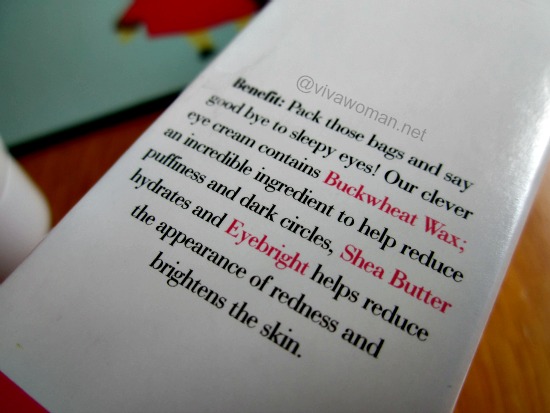 @vivawoman.net
Benefit: Pack those bags and say
good bye to sleepy eyes! Our clever
eye cream contains Buckwheat Wax;
an incredible ingredient to help reduce
puffiness and dark circles, Shea Butter
hydrates and Eyebright helps reduce
the appearance of redness and
brightens the skin.